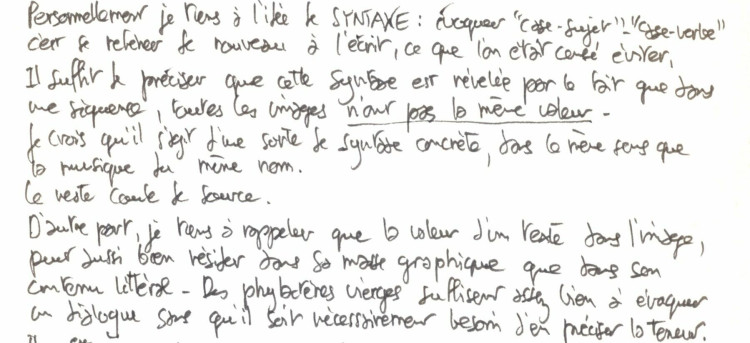 Personnellement je tiens à l'idée de SYNTAXE : évoquer "case-sujet"-"case-verbe"
c'est se référer de nouveau à l'écrit, ce que l'on était censé éviter.
Il suffit de préciser que cette syntaxe est révélée par le fait que dans
une séquence, toutes les images n'ont pas la même valeur -
Je crois qu'il s'agit d'une sorte de syntaxe concrète, dans le même sens que
la musique du même nom.
Le reste coule de source.
D'autre part, je tiens à rappeler que la valeur d'un texte dans l'image,
peut aussi bien résider dans sa masse graphique que dans son
contenu littéral - Des phylactères vierges suffisent assez bien à évoquer
un dialogue sans qu'il soit nécessairement besoin d'en préciser la teneur.